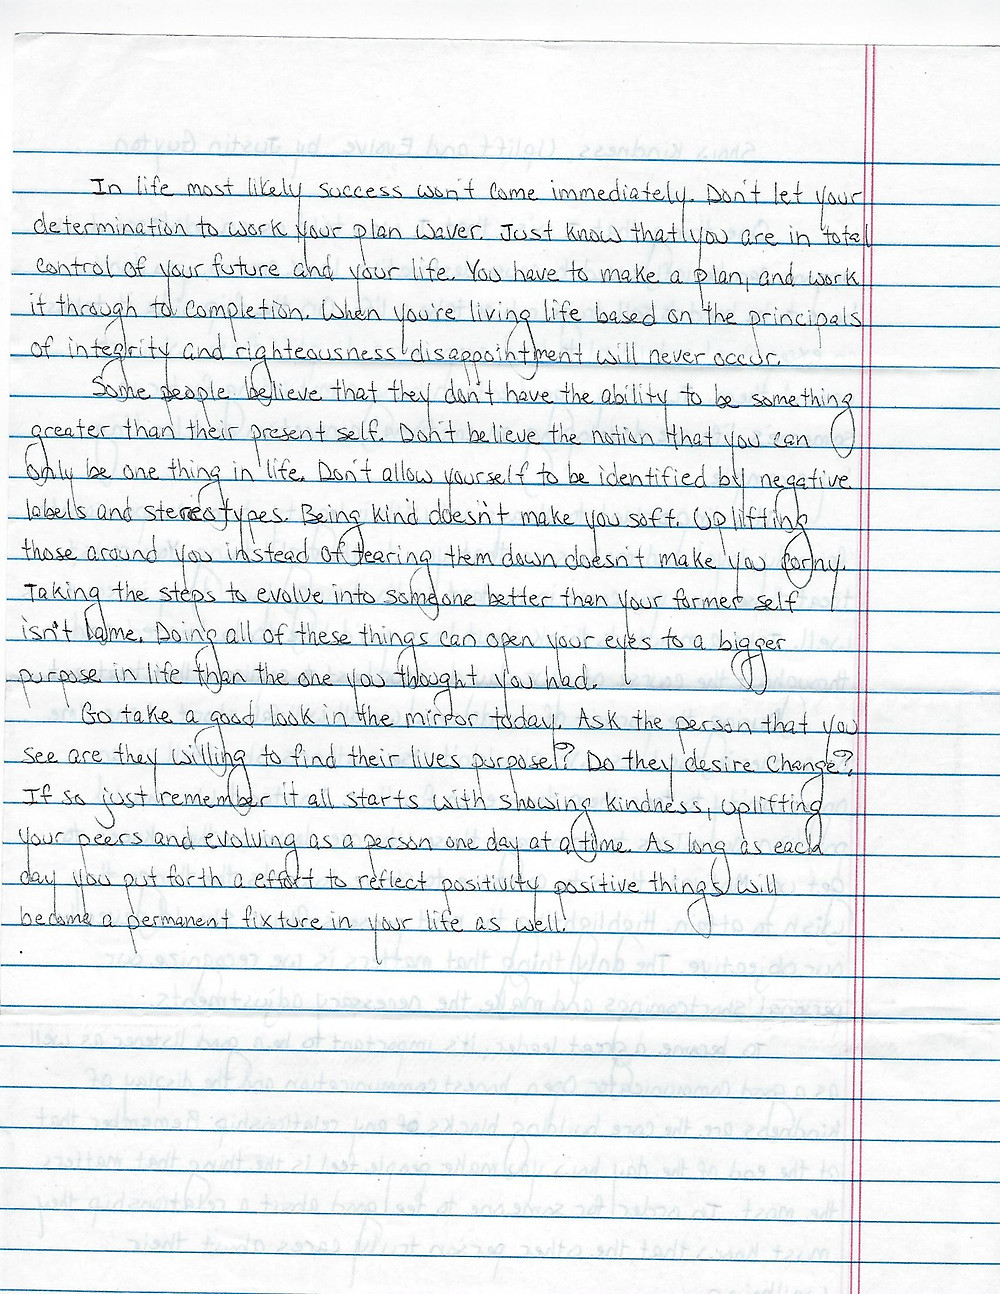 In life most likely success won't come immediately. Don't let your
determination to work your plan waver. Just know that you are in total
control of your future and your life. You have to make a plan, and work
it through to completion. When you're living life based on the principals
of integrity and righteousness disappointment will never occur.
Some people believe that they don't have the ability to be something
greater than their present self. Don't believe the notion that you can
only be one thing in life. Don't allow yourself to be identified by negative
labels and stereotypes. Being kind doesn't make you soft. Uplifting
those around you instead of tearing them down doesn't make you corny.
Taking the steps to evolve into someone better than your former self
isn't lame. Doing all of these things can open your eyes to a bigger
purpose in life than the one you thought you had.
Go take a good look in the mirror today. Ask the person that you
see are they willing to find their lives purpose? Do they desire change?
If so just remember it all starts with showing kindness, uplifting
your peers and evolving as a person one day at a time. As long as each
day you put forth a effort to reflect positivity positive things will
become a permanent fixture in your life as well.